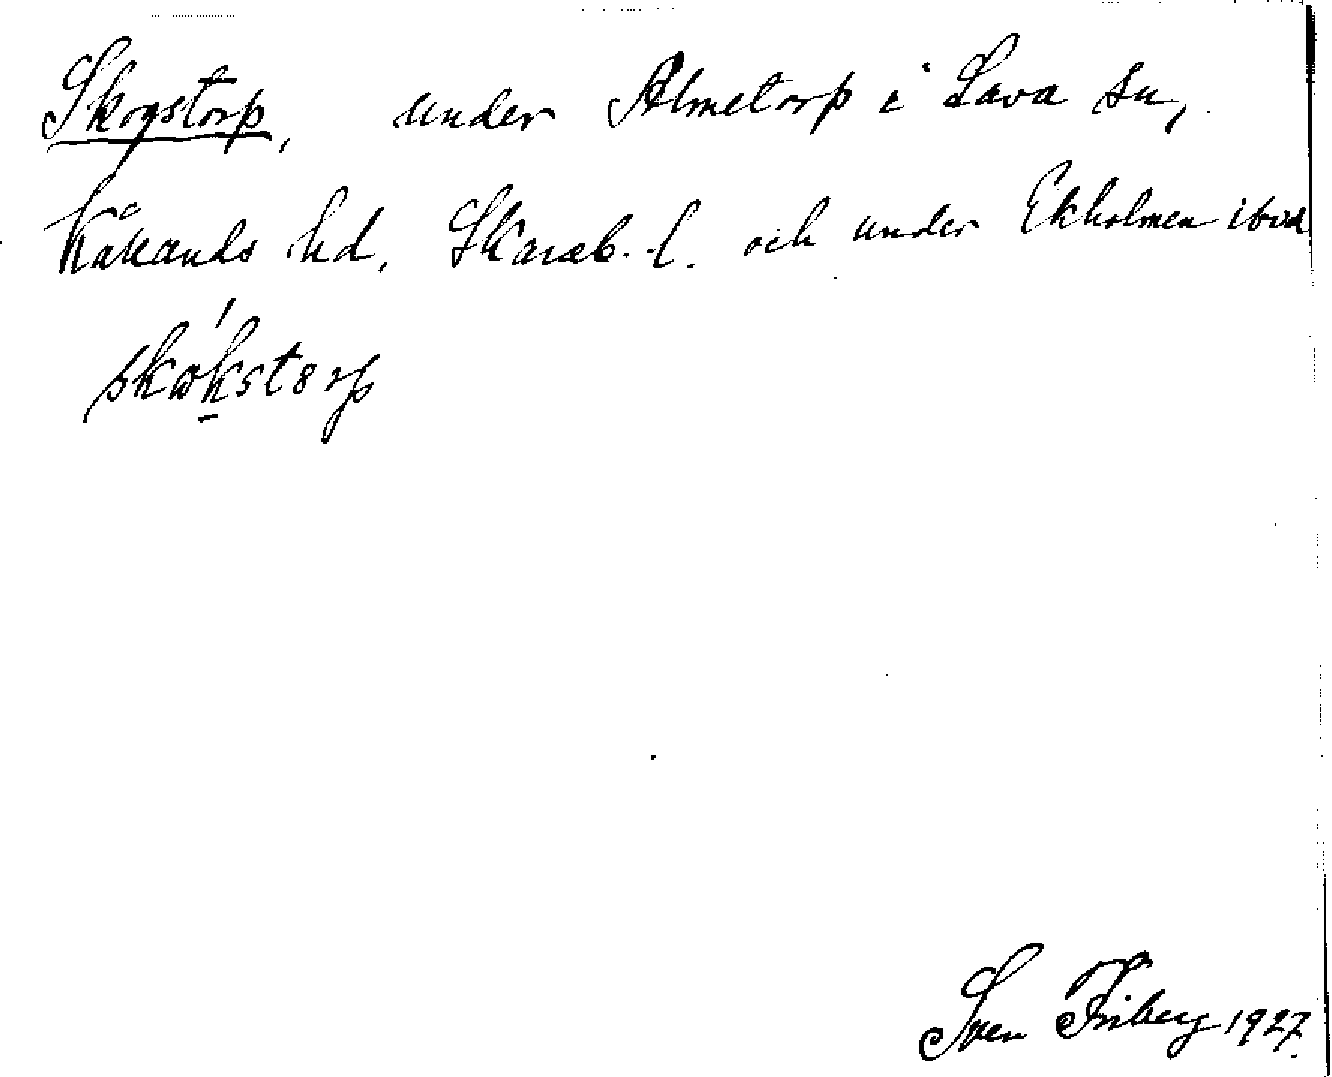 Skogstorp, under Almetorp i Lava sn,
Kåkands hd, Skarab. l. och under Ekholmen ibid
Sven Friberg 1927.